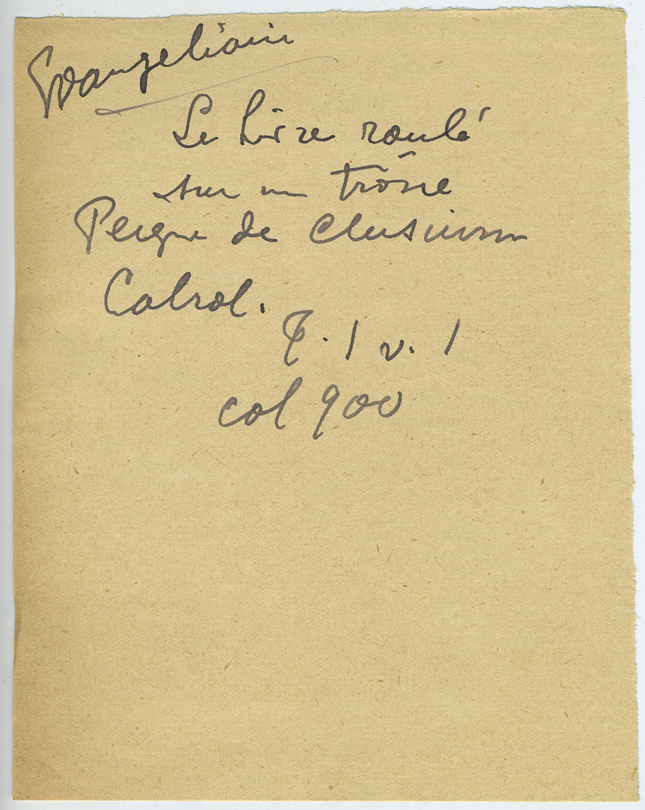 Evangeliaire
Le livre roulé
sur un trône
Peigne de Clusium
Cabrol.
T. 1 v. 1
col 900